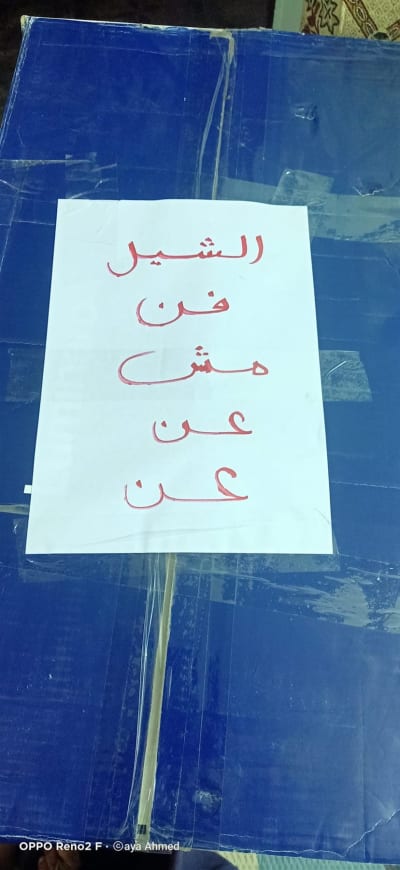 الشيل
فن
مش
عن
عن
OPPO Reno2 F · ©aya Ahmed